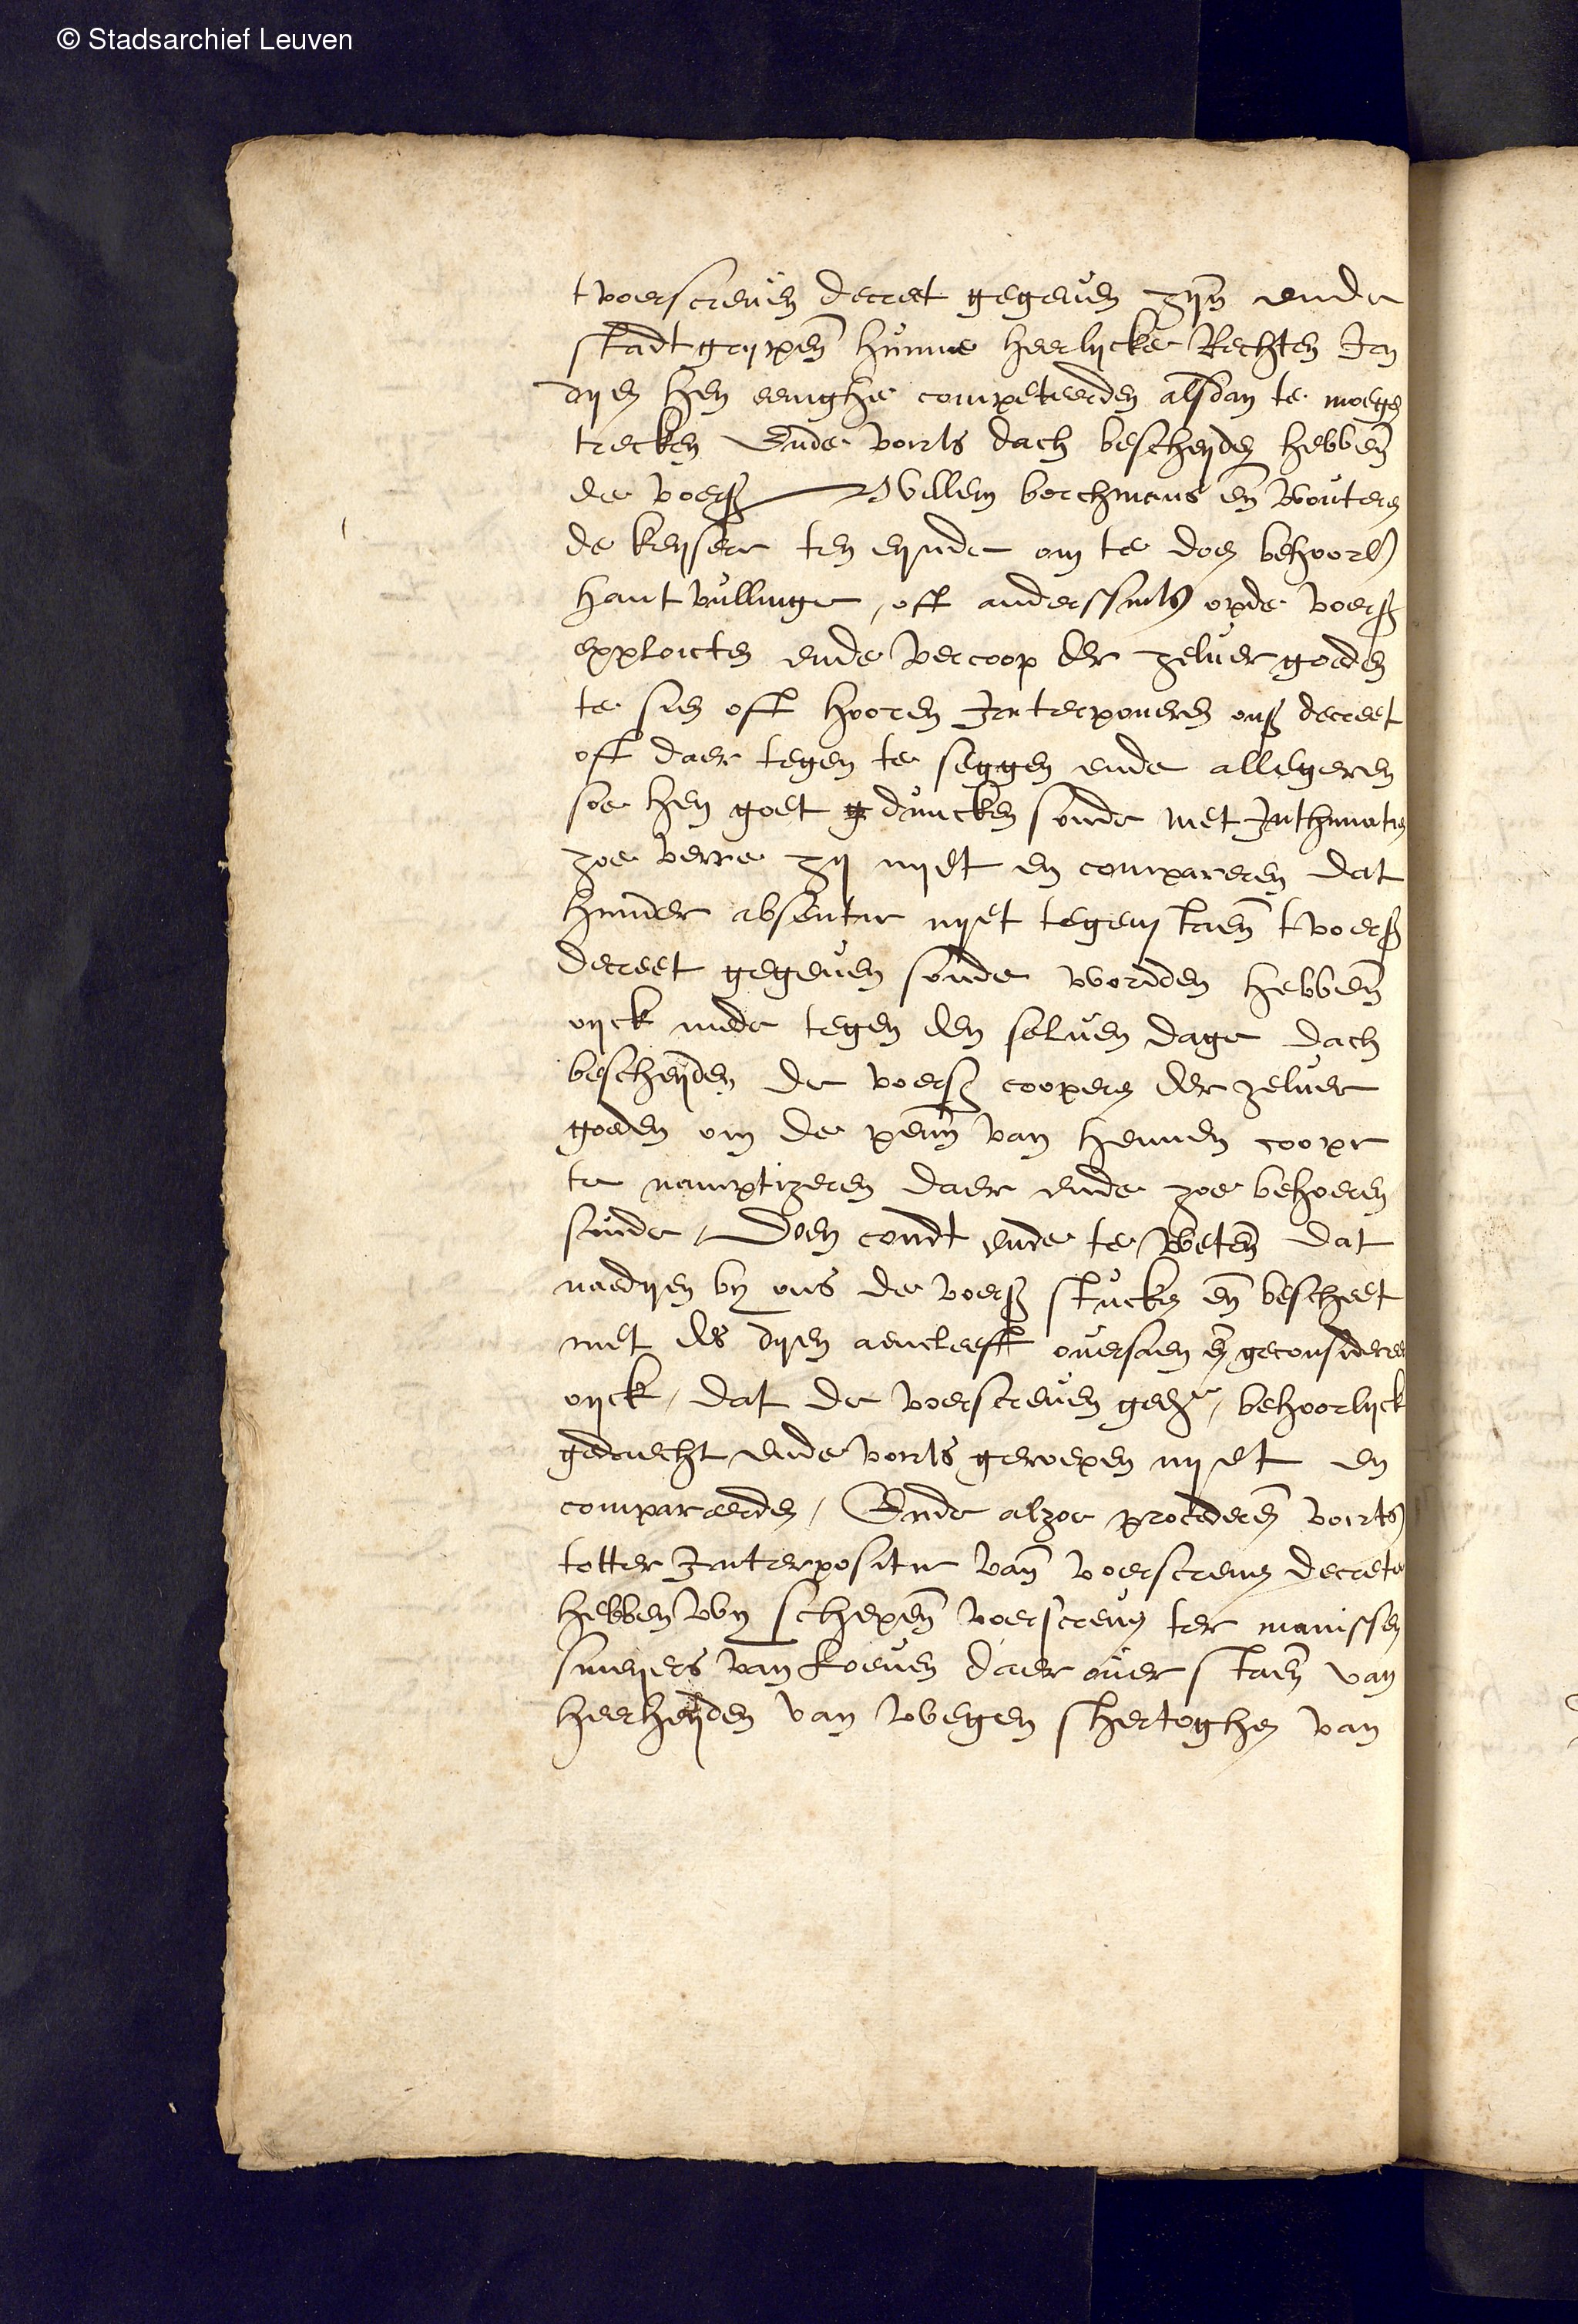 © Stadsarchief Leuven
tvoerscreuen decreet gegeuen zyn ende
stadt grypen hunne heerlycke Rechten In
dyen hen eenighe competeerden alsdan te moegen
trecken Ende voirts dach bescheyden hebben
de voers Willem borchmans en wouteren
de keysere ten eynde om te doen behoorl
hantvullinge, oft anderssints opde voers
exploicten ende vercoop der zeluer goeden
te sien oft hooren Interponeren ons decreet
oft daer tegen te seggen ende allegeren
soe hen goet duncken soude met Inthimatie
zoe verre zy nyet en compareren dat
hunder absentie nyet tegenstaen tvoers
decreet gegeuen soude wordden hebben
oyck mede tegen den seluen dage dach
bescheyden de voers coopers der zeluer
goeden om de penn van hennen coope
te namptizeren daer ende zoe behoeren
sunde, Doen condt ende te weten dat
naedyen by ons de voers stucken en bescheet
met des dyen aencleeft ouersien en geconsidereert
oyck, dat de voerscreuen geede, behoorlyck
gedaecht ende voirts geroepen nyet en
compareerden, Ende alzoe procederen voirts
totter Interpositie van voerscreuen decrete
hebben wy schepen voerscreuen ter manissen
smeyers van Loeuen daer ouer staen van
heerheyden van wegen shertoghen van